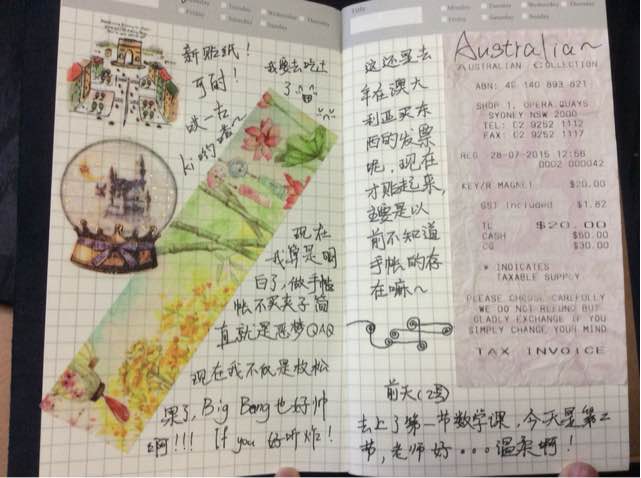 Monday
Tuesday
Wednesday
Thursday
Friday
Saturday
Sunday
新贴纸！
可耐！
ki的省~
我要去吃过
了
现在
我算是明
白了，做手帐
不买夹子简
直就是恶梦QAQ
现在我不仅是枚松
果了，Big Bang也好帅
啊！！！ If you 好听炸！
Title
Monday
Tuesday
Wednesday
Thursday
Friday
Saturday
Sunday
这还是去
年在澳大
利亚买东
西的发票
呢，现在
才贴起来，
主要是以
前不知道
手帐的存
在嘛~
前天(2号)
去上了第一节数学课，今天是第二
节，老师好...温柔啊！
Australian~
AUSTRALIAN COLLECTION
ABN: 46 140 893 621
SHOP 1, OPERA QUAYS
SYDNEY NSW 2000
TEL: 02 9252 1112
FAX: 02 9252 1117
REG 28-07-2015 12:56
0002 000042
KEY/R MAGNET $20.00
GST Included $1.82
TL $20.00
CASH $50.00
CG $30.00
* INDICATES
TAXABLE SUPPLY
PLEASE CHOOSE CAREFULLY
WE DO NOT REFUND BUT
GLADLY EXCHANGE IF YOU
SIMPLY CHANGE YOUR MIND
TAX INVOICE